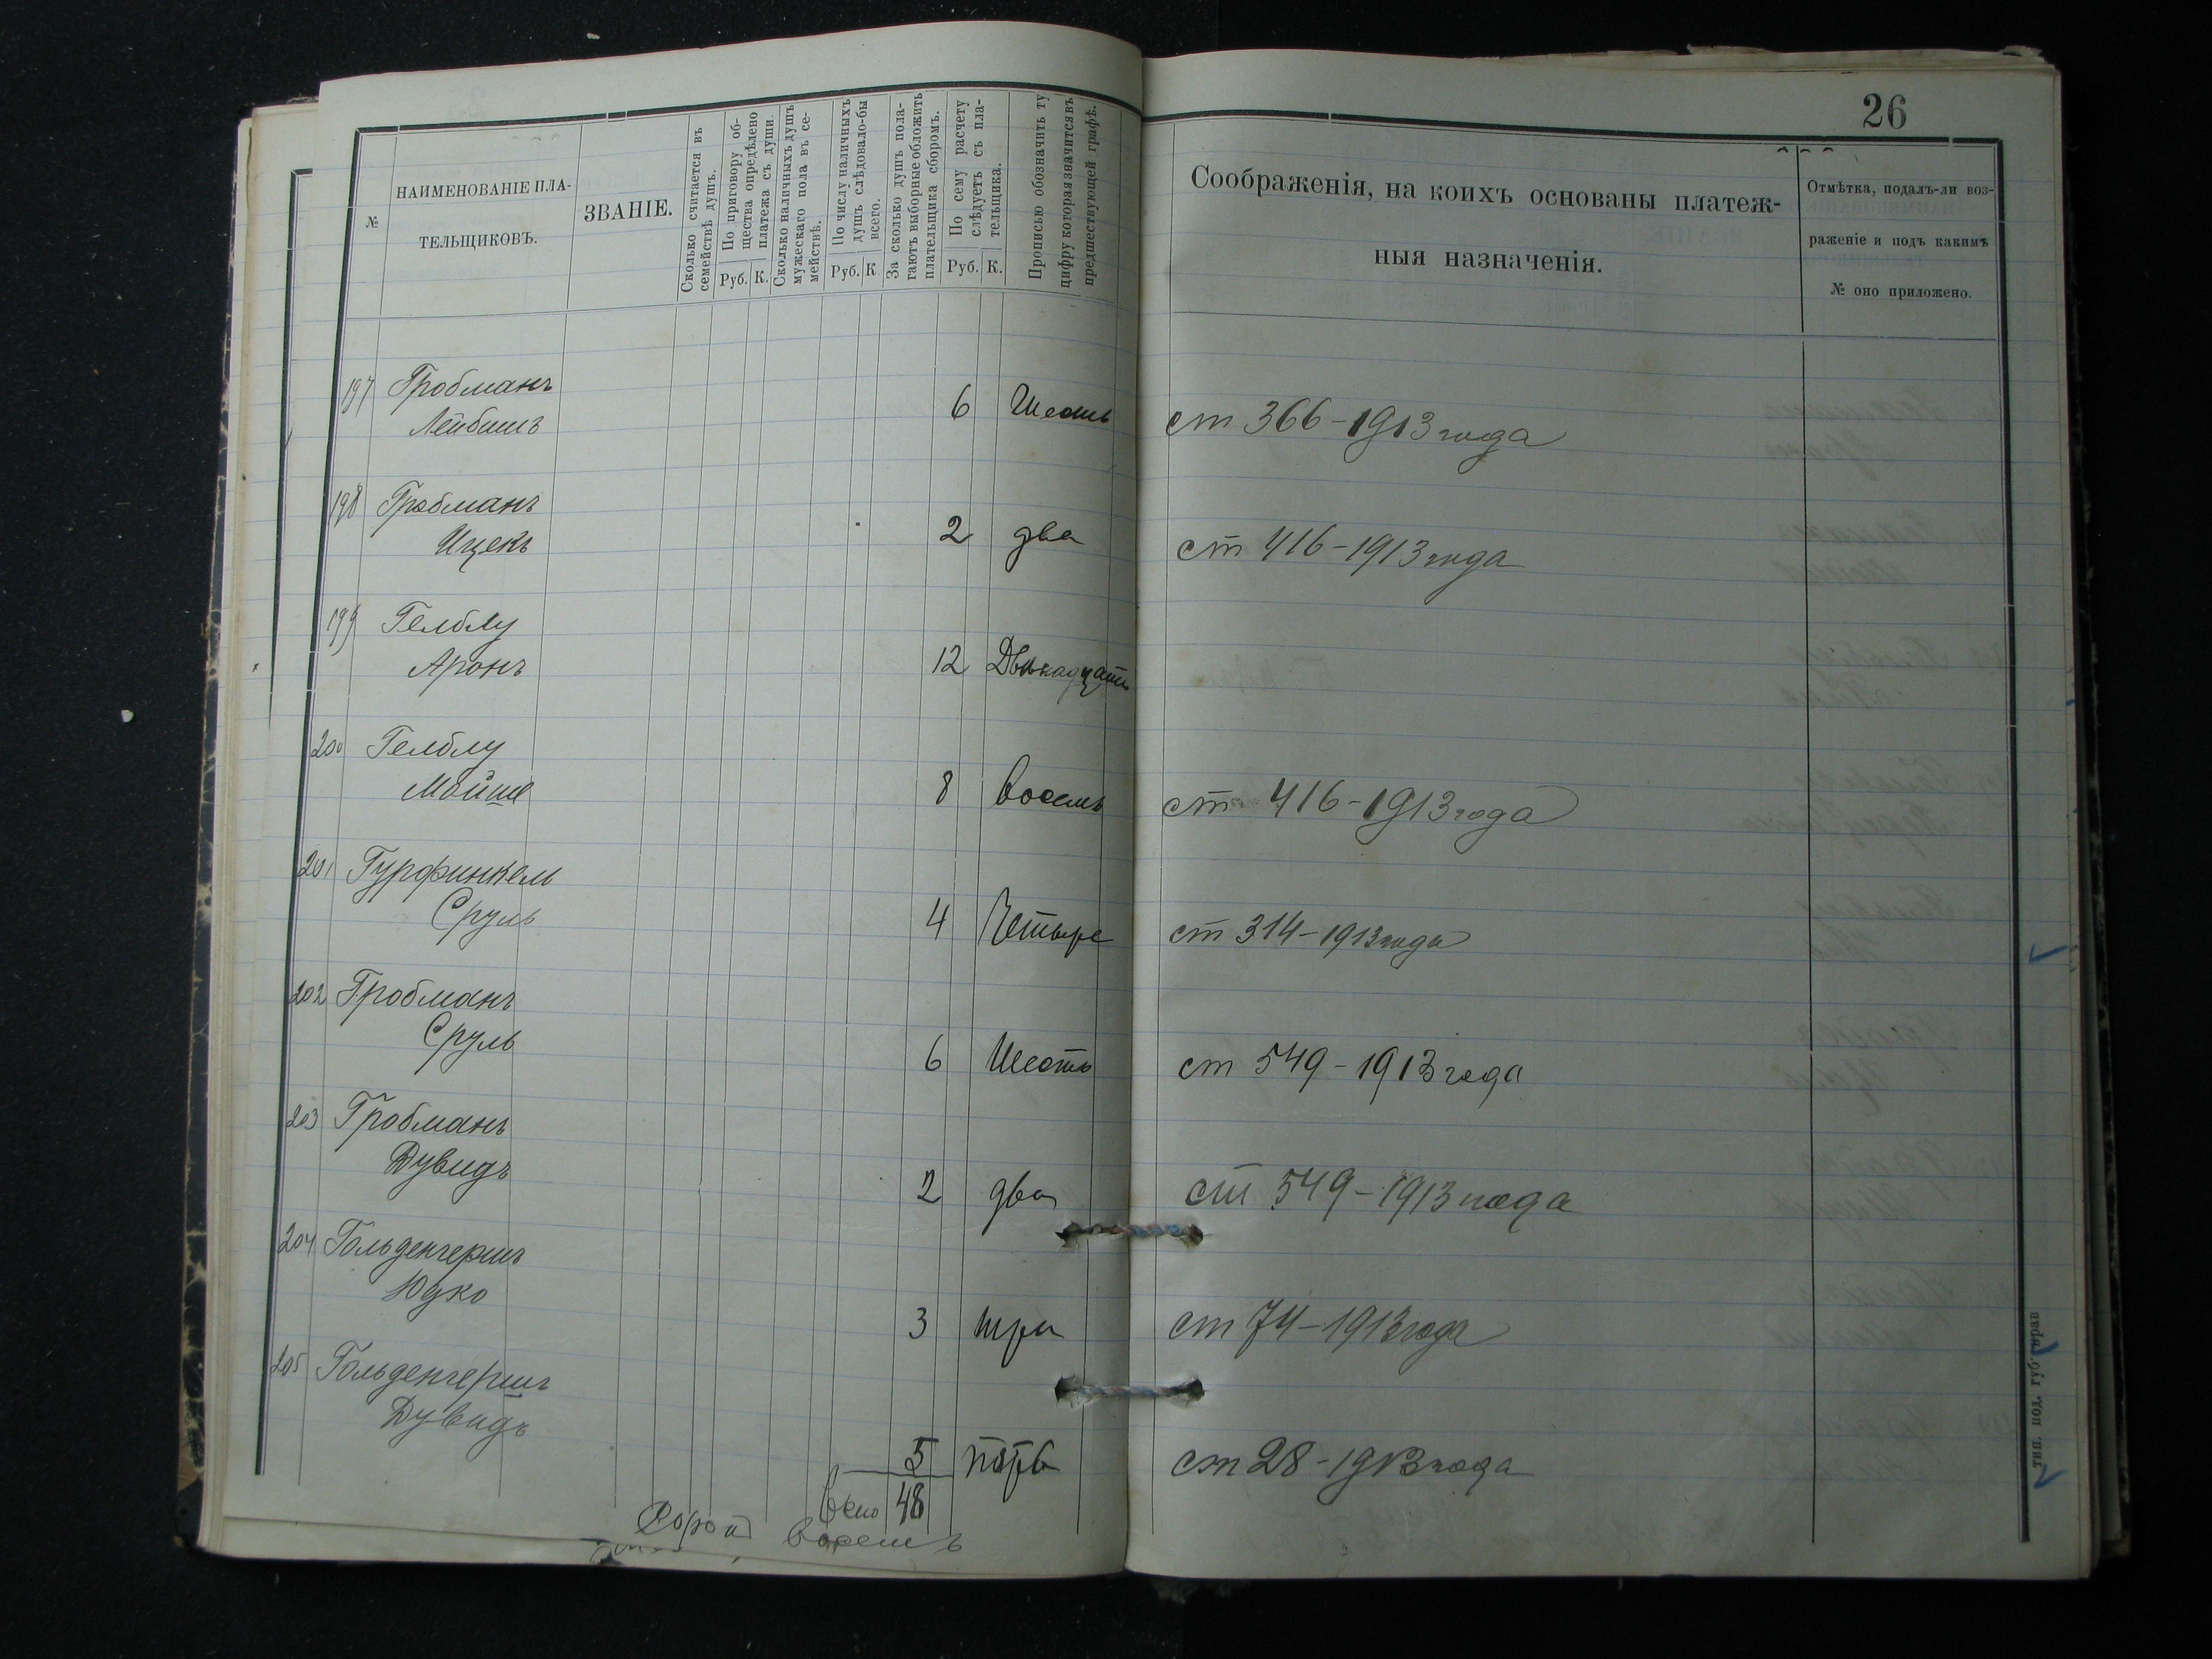 26
№
НАИМЕНОВАНІЕ ПЛА-
ТЕЛЬЩИКОВЪ.
ЗВАНІЕ.
Сколько считается въ
семействѣ душъ.
По приговору об-
щества опредѣлено
платежа съ души.
Руб. К.
Сколько наличныхъ душъ
мужескаго пола въ се-
мействѣ.
По числу наличныхъ
душъ слѣдовало-бы
всего.
Руб. К.
За сколько душъ пола-
гаютъ выборные обложить
плательщика сборомъ.
По сему расчету
слѣдуетъ съ пла-
тельщика.
Руб. К.
Прописью обозначить ту
цифру которая значится въ
предшествующей графѣ.
Соображенія, на коихъ основаны платеж-
ныя назначенія.
Отмѣтка, подалъ-ли воз-
раженіе и подъ какимъ
№ оно приложено.
197 Гробманъ
Лейбишъ 6 Шесть ст 366-1913 года
198 Гробманъ
Ицекъ 2 два ст 416-1913 года
199 Гелблу
Аронъ 12 Двѣнадцать
200 Гелблу
Мойше 8 восемь ст 416-1913 года
201 Гурфинкель
Сруль 4 Четыре ст 314-1913 года
202 Гробманъ
Сруль 6 Шесть ст 549-1913 года
203 Гробманъ
Дувидъ 2 два ст 549-1913 года
204 Гольденгершъ
Юдко 3 три ст 74-1913 года
205 Гольденгершъ
Дувидъ
5 пять ст 28-1913 года
48
восемь
тип. под. губ. прав